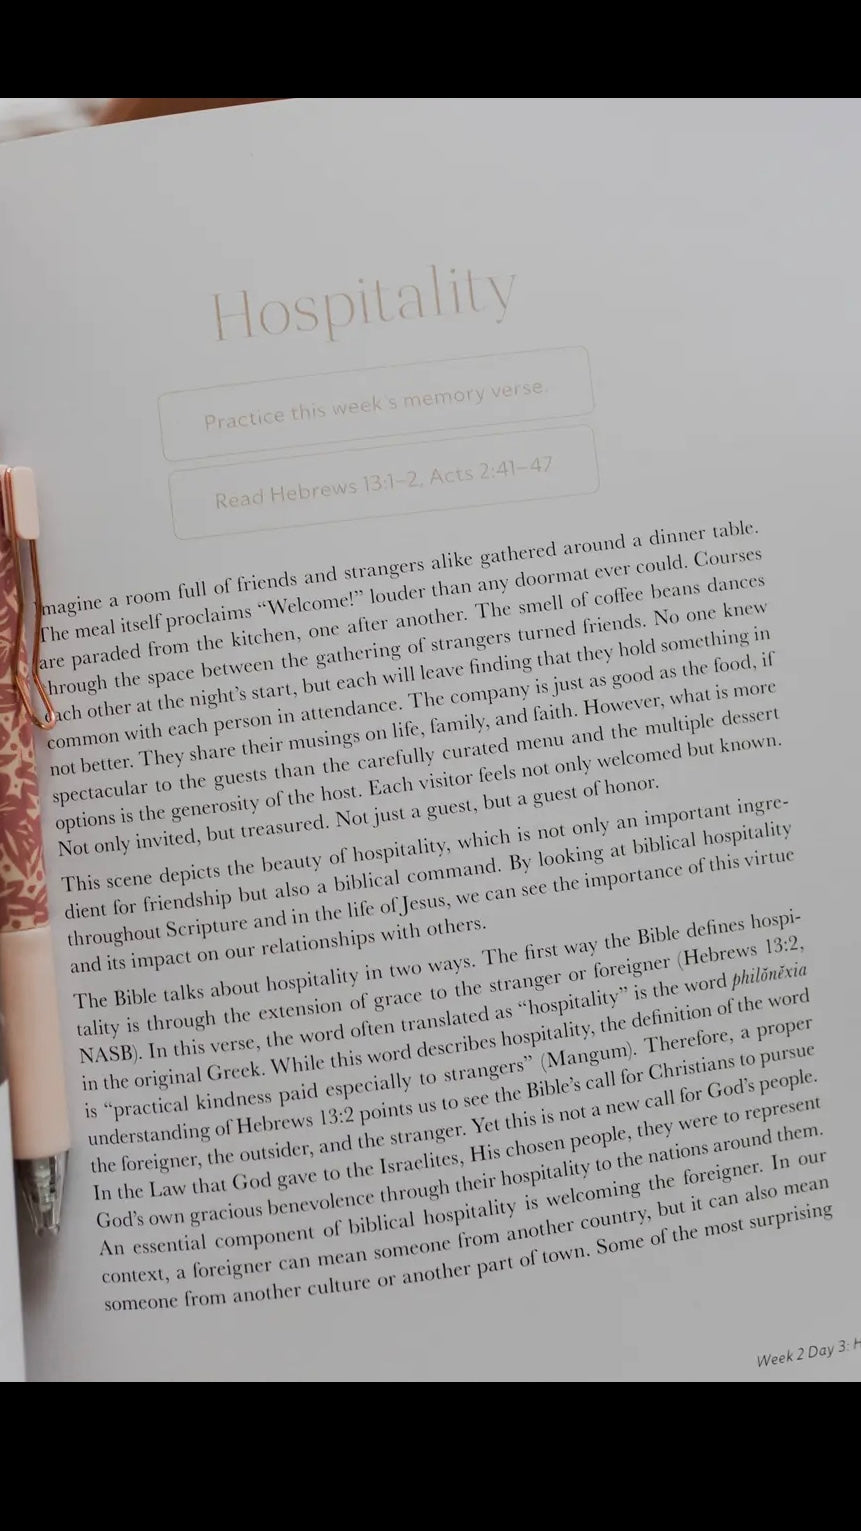 Hospitality
Practice this week's memory verse.
Read Hebrews 13:1–2, Acts 2:41–47
magine a room full of friends and strangers alike gathered around a dinner table.
The meal itself proclaims “Welcome!” louder than any doormat ever could. Courses
are paraded from the kitchen, one after another. The smell of coffee beans dances
hrough the space between the gathering of strangers turned friends. No one knew
each other at the night’s start, but each will leave finding that they hold something in
common with each person in attendance. The company is just as good as the food, if
not better. They share their musings on life, family, and faith. However, what is more
spectacular to the guests than the carefully curated menu and the multiple dessert
options is the generosity of the host. Each visitor feels not only welcomed but known.
Not only invited, but treasured. Not just a guest, but a guest of honor.
This scene depicts the beauty of hospitality, which is not only an important ingre-
dient for friendship but also a biblical command. By looking at biblical hospitality
throughout Scripture and in the life of Jesus, we can see the importance of this virtue
and its impact on our relationships with others.
The Bible talks about hospitality in two ways. The first way the Bible defines hospi-
tality is through the extension of grace to the stranger or foreigner (Hebrews 13:2,
NASB). In this verse, the word often translated as “hospitality” is the word philŏnĕxia
in the original Greek. While this word describes hospitality, the definition of the word
is “practical kindness paid especially to strangers” (Mangum). Therefore, a proper
understanding of Hebrews 13:2 points us to see the Bible’s call for Christians to pursue
the foreigner, the outsider, and the stranger. Yet this is not a new call for God’s people.
In the Law that God gave to the Israelites, His chosen people, they were to represent
God’s own gracious benevolence through their hospitality to the nations around them.
An essential component of biblical hospitality is welcoming the foreigner. In our
context, a foreigner can mean someone from another country, but it can also mean
someone from another culture or another part of town. Some of the most surprising
Week 2 Day 3: H